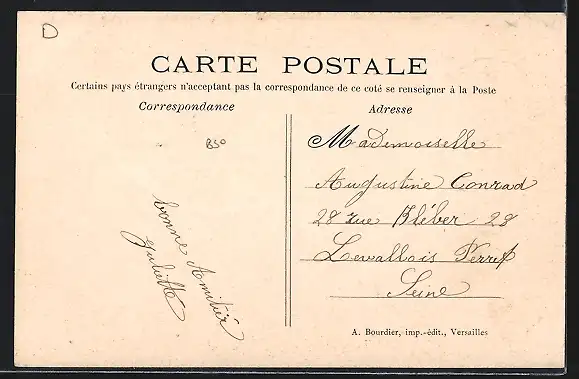 D
CARTE POSTALE
Certains pays étrangers n'acceptant pas la correspondance de ce coté se renseigner à la Poste
Correspondance
Adresse
bonne Amitié
Juliette
Mademoiselle
Augustine Conrad
28 rue Kléber 28
Levallois Perret
Seine
A. Bourdier, imp.-édit., Versailles